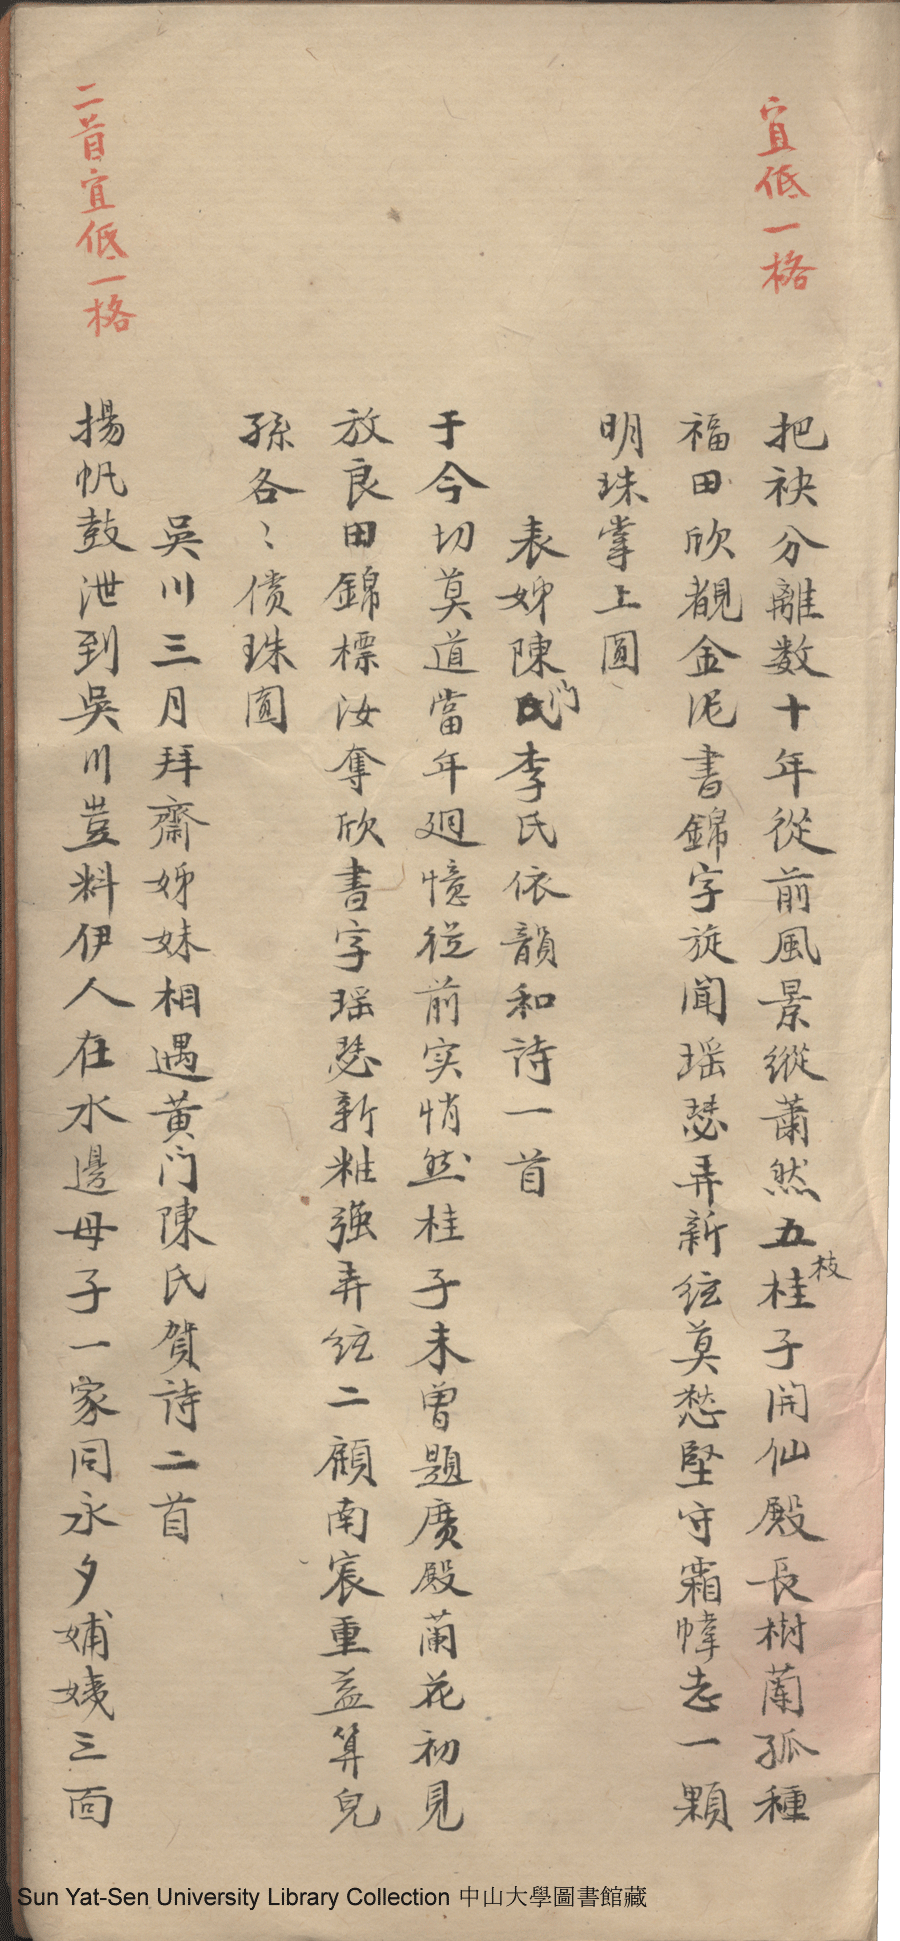 宜低一格
把袂分離数十年從前風景縱蕭然五枝桂子開仙殿長樹蘭孤種
福田欣覩金泥書錦字旋聞瑶瑟弄新絃莫愁堅守霜幃志一顆
明珠掌上圓
表姊陳门李氏依韻和詩一首
于今切莫道當年廻憶從前实悄然桂子未曾題廣殿蘭花初見
放良田錦標汝奪欣書字瑶瑟新粧强弄絃二顧南宸重益算兒
孫各〻債珠圓
吳川三月拜齋姊妹相遇黄门陳氏賀詩二首
二首宜低一格
揚帆鼓泄到吳川豈料伊人在水邊母子一家同永夕婦姨三面
Sun Yat-Sen University Library Collection 中山大學圖書館藏